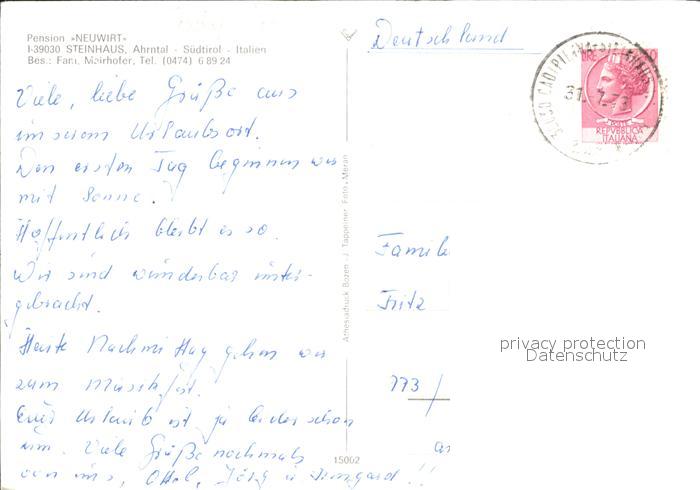 Pension »NEUWIRT«
I-39030 STEINHAUS, Ahrntal - Südtirol - Italien
Bes.: Fam. Mairhofer, Tel. (0474) 6 89 24
Viele, liebe Grüße aus
unserem Urlaubsort.
Den ersten Tag beginnen wir
mit Sonne.
Hoffentlich bleibt es so.
Wir sind wunderbar unter-
gebracht.
Heute Nachmittag gehen wir
zum Musikfest.
Euer Urlaub ist ja leider schon
um. Viele Grüße nochmals
von uns, Jörg u. Irmgard!!
Athesiadruck Bozen - J. Tappeiner Foto, Meran
15002
Deutschland
31. 7. 73
LIRE
POSTE
REPVBBLICA
ITALIANA
Famili
Fritz
privacy protection
Datenschutz
773